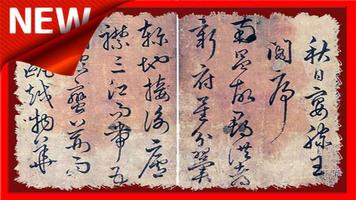 NEW
秋日宴滕王
閣序
南昌故郡洪都
新府星分翼
軫地接衡廬
襟三江而帶五
蠻荊而
甌越物華